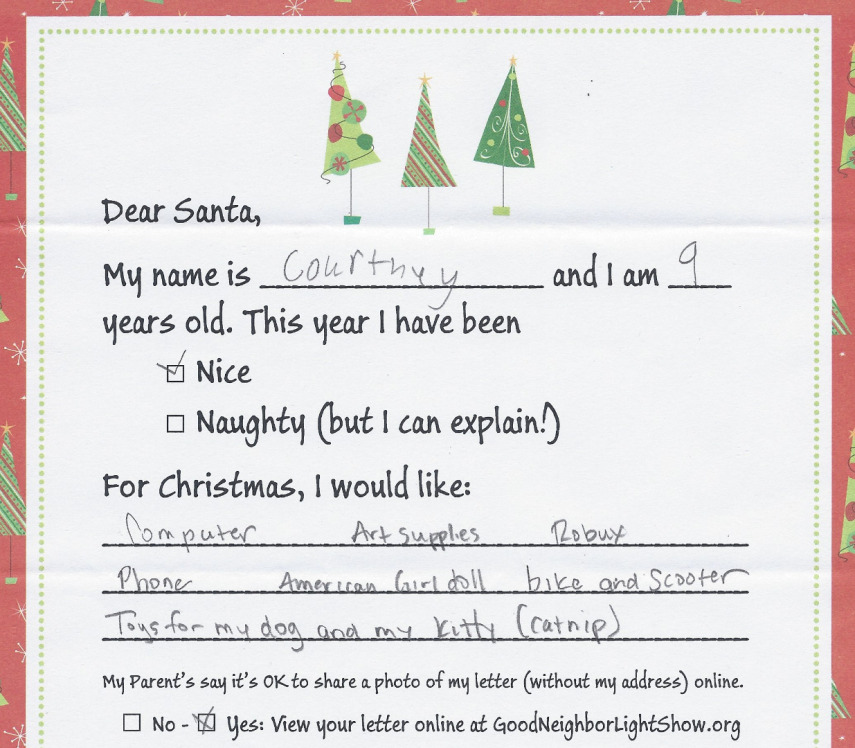 Dear Santa,
My name is Courtney and I am 9
years old. This year I have been
☑ Nice
☐ Naughty (but I can explain!)
For Christmas, I would like:
Computer Art supplies Robux
Phone American Girl doll bike and Scooter
Toys for my dog and my kitty (catnip)
My Parent's say it's OK to share a photo of my letter (without my address) online.
☐ No - ☑ Yes: View your letter online at GoodNeighborLightShow.org